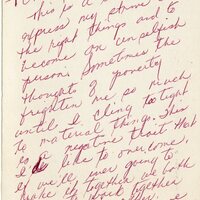 this is a
express my strive
the right things and to
become an unselfish
person. Sometimes the
thought of poverty
frighten me so much
until I cling too tight
to material things. This
is a negative trait that
I like to overcome,
if we'll ever going to
make it together we both
to work together